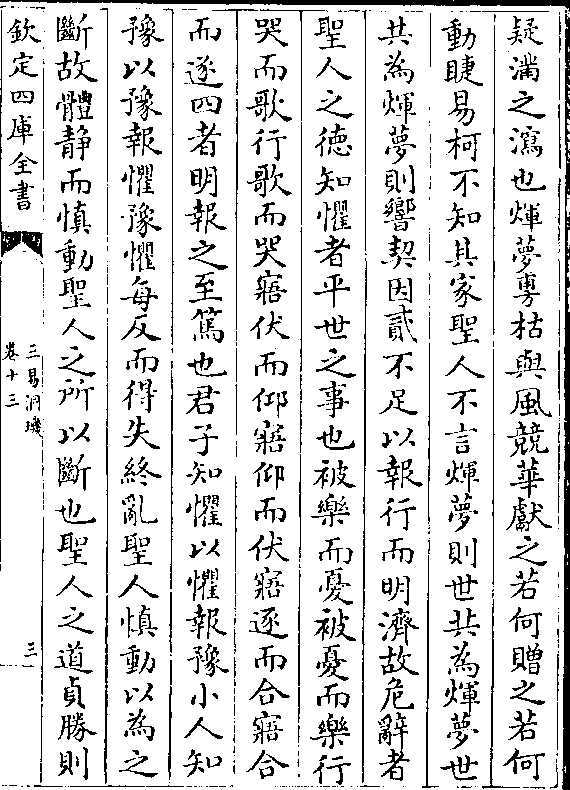 疑滿之瀉也煇夢旉枯與風競華獻之若何贈之若何
動睫易柯不知其家聖人不言煇夢則世共為煇夢世
共為煇夢則響契因貳不足以報行而明濟故危辭者
聖人之德知懼者平世之事也被樂而憂被憂而樂行
哭而歌行歌而哭寤伏而仰寤仰而伏寤逐而合寤合
而逐四者明報之至篤也君子知懼以懼報豫小人知
豫以豫報懼豫懼每反而得失終亂聖人慎動以為之
斷故體静而慎動聖人之所以斷也聖人之道貞勝則
欽定四庫全書
三易洞璣
卷十三
三